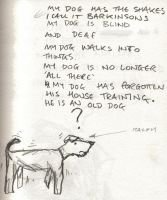 MY DOG HAS THE SHAKES
I CALL IT BARKINSONS
MY DOG IS BLIND
AND DEAF
MY DOG WALKS INTO
THINGS
MY DOG IS NO LONGER
'ALL THERE'
MY DOG HAS FORGOTTEN
HIS HOUSE TRAINING.
HE IS AN OLD DOG
?